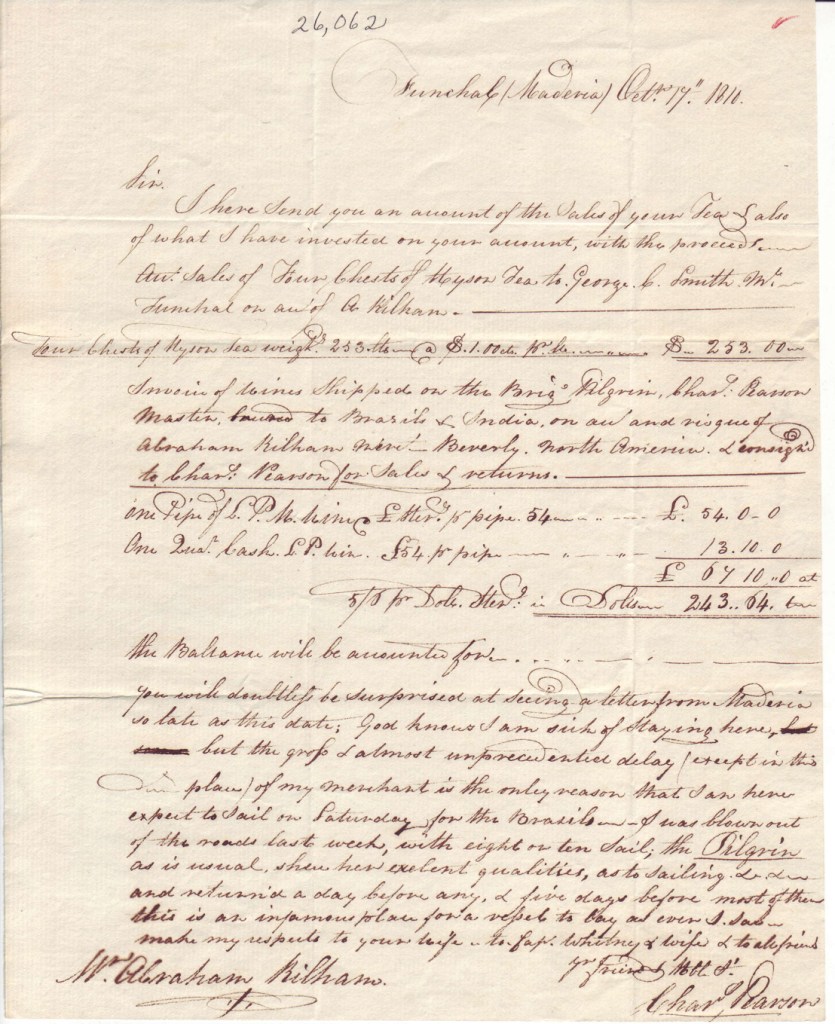 26,062
Funchal (Maderia) Octr. 17" 1810.
Sir.
I here Send you an account of the Sales of your Tea & also
of what I have invested on your account, with the proceeds.
Acct. Sales of Four Chests of Hyson Tea to George. C. Smith. Mt.
Funchal on acct of A Kilham.
Four Chests of Hyson Tea weighg. 253 lbs a $.1.00cts. pr. lb. $ 253.00
Invoice of Wines Shipped on the Brig Pilgrin, Chars. Pearson
Master, to Brazils & India, on acct and risque of
Abraham Kilham Mercht Beverly. North America. & consignd
to Chars. Pearson for Sales & returns.
One Pipe of L. P. M. Wine £ Sterg. pr pipe. 54 £. 54.0-0
One Quar. Cask. L. P. Win. £54 pr pipe 13.10.0
£ 67 10,,0 at
5/6 pr Dolr. Sterg. is Dolls 243..64.
the Ballance will be accounted for
you will doubtless be surprised at seeing a letter from Maderia
so late as this date; God knows I am sick of Staying here, but
but the gross & almost unprecedented delay (except in this
place) of my merchant is the only reason that I am here
expect to Sail on Saturday for the Brazils I was blown out
of the roads last week, with eight or ten Sail; the Pilgrin
as is usual, shew her exelent qualities, as to sailing &c &c
and return'd a day before any, & five days before most of them
this is an infamous place for a vessel to lay as ever I saw
make my respects to your wife to Capt. Whitney & wife & to all friend
yr friend & Hbl St.
Mr. Abraham Kilham.
Chars. Pearson